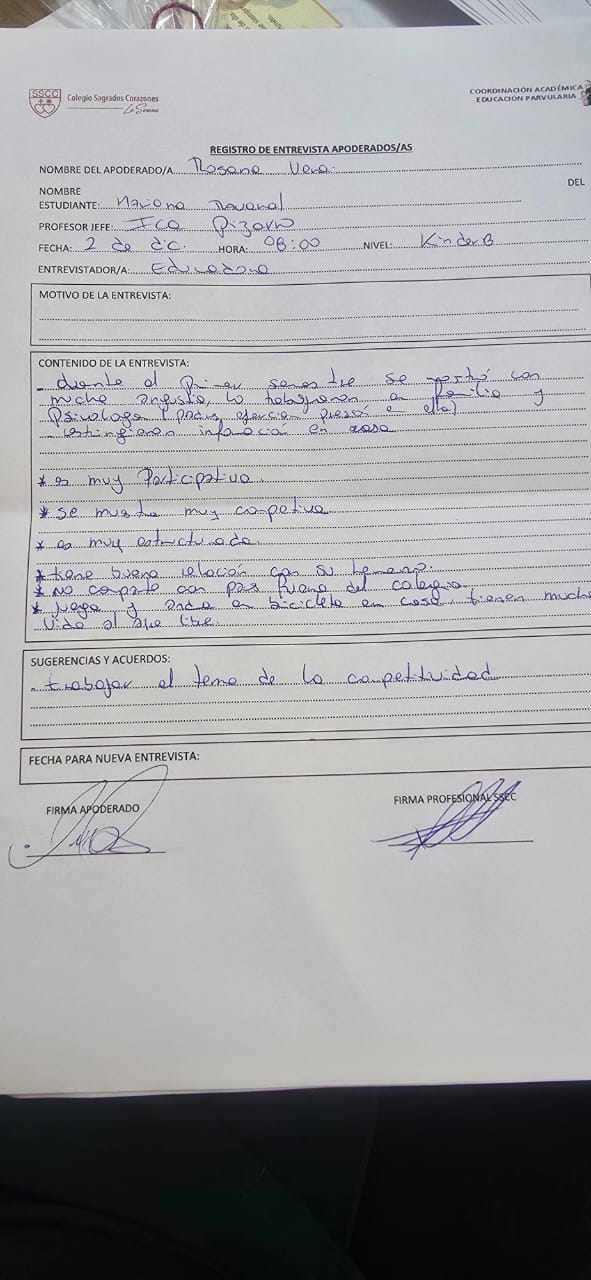 SSCC
Colegio Sagrados Corazones
La Serena
COORDINACIÓN ACADÉMICA
EDUCACIÓN PARVULARIA
REGISTRO DE ENTREVISTA APODERADOS/AS
NOMBRE DEL APODERADO/A Rosana Vera
NOMBRE DEL
ESTUDIANTE: Mariana
PROFESOR JEFE: Fca Pizarro
FECHA: 2 de dic. HORA: 08:00 NIVEL: Kinder B
ENTREVISTADOR/A: Educadora
MOTIVO DE LA ENTREVISTA:
CONTENIDO DE LA ENTREVISTA:
- durante el Primer semestre se con
mucha angustia, lo trabajaron en familia y
Psicologa (padres ejercian presión a ella)
- información en casa
* es muy Participativa
* se muestra muy competiva
* es muy estructurada.
* tiene buena relación con su hermano.
* No comparte con pares fuera del colegio
* Juega y anda en bicicleta en casa, tienen mucha
vida al aire libre.
SUGERENCIAS Y ACUERDOS:
- trabajar el tema de la competitividad
FECHA PARA NUEVA ENTREVISTA:
FIRMA APODERADO FIRMA PROFESIONAL SSCC